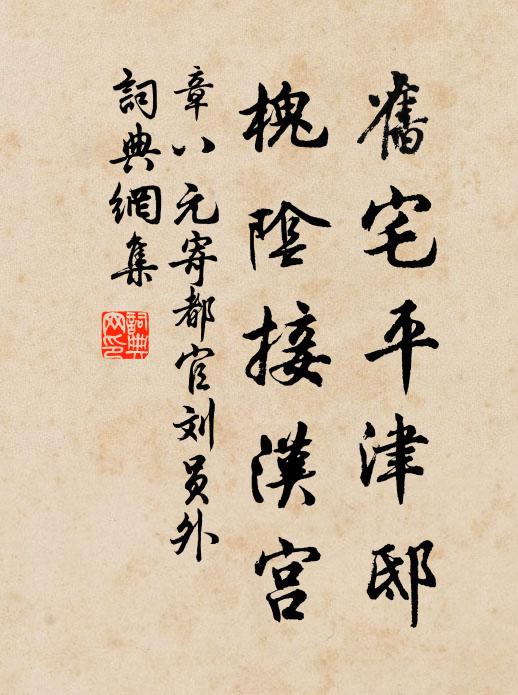 舊宅平津邸
槐陰接漢宮
章八元寄都官刘員外
詞典網集
詞典網印